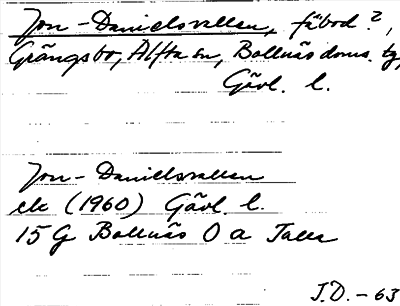 Jon-Danielsvallen, fäbod?,
Grängsbo, Alfta sn, Bollnäs doms. tg,
Gävl. l.
Jon-Danielsvallen
ek (1960) Gävl. l.
15 G Bollnäs O a Talls
J.D. - 63